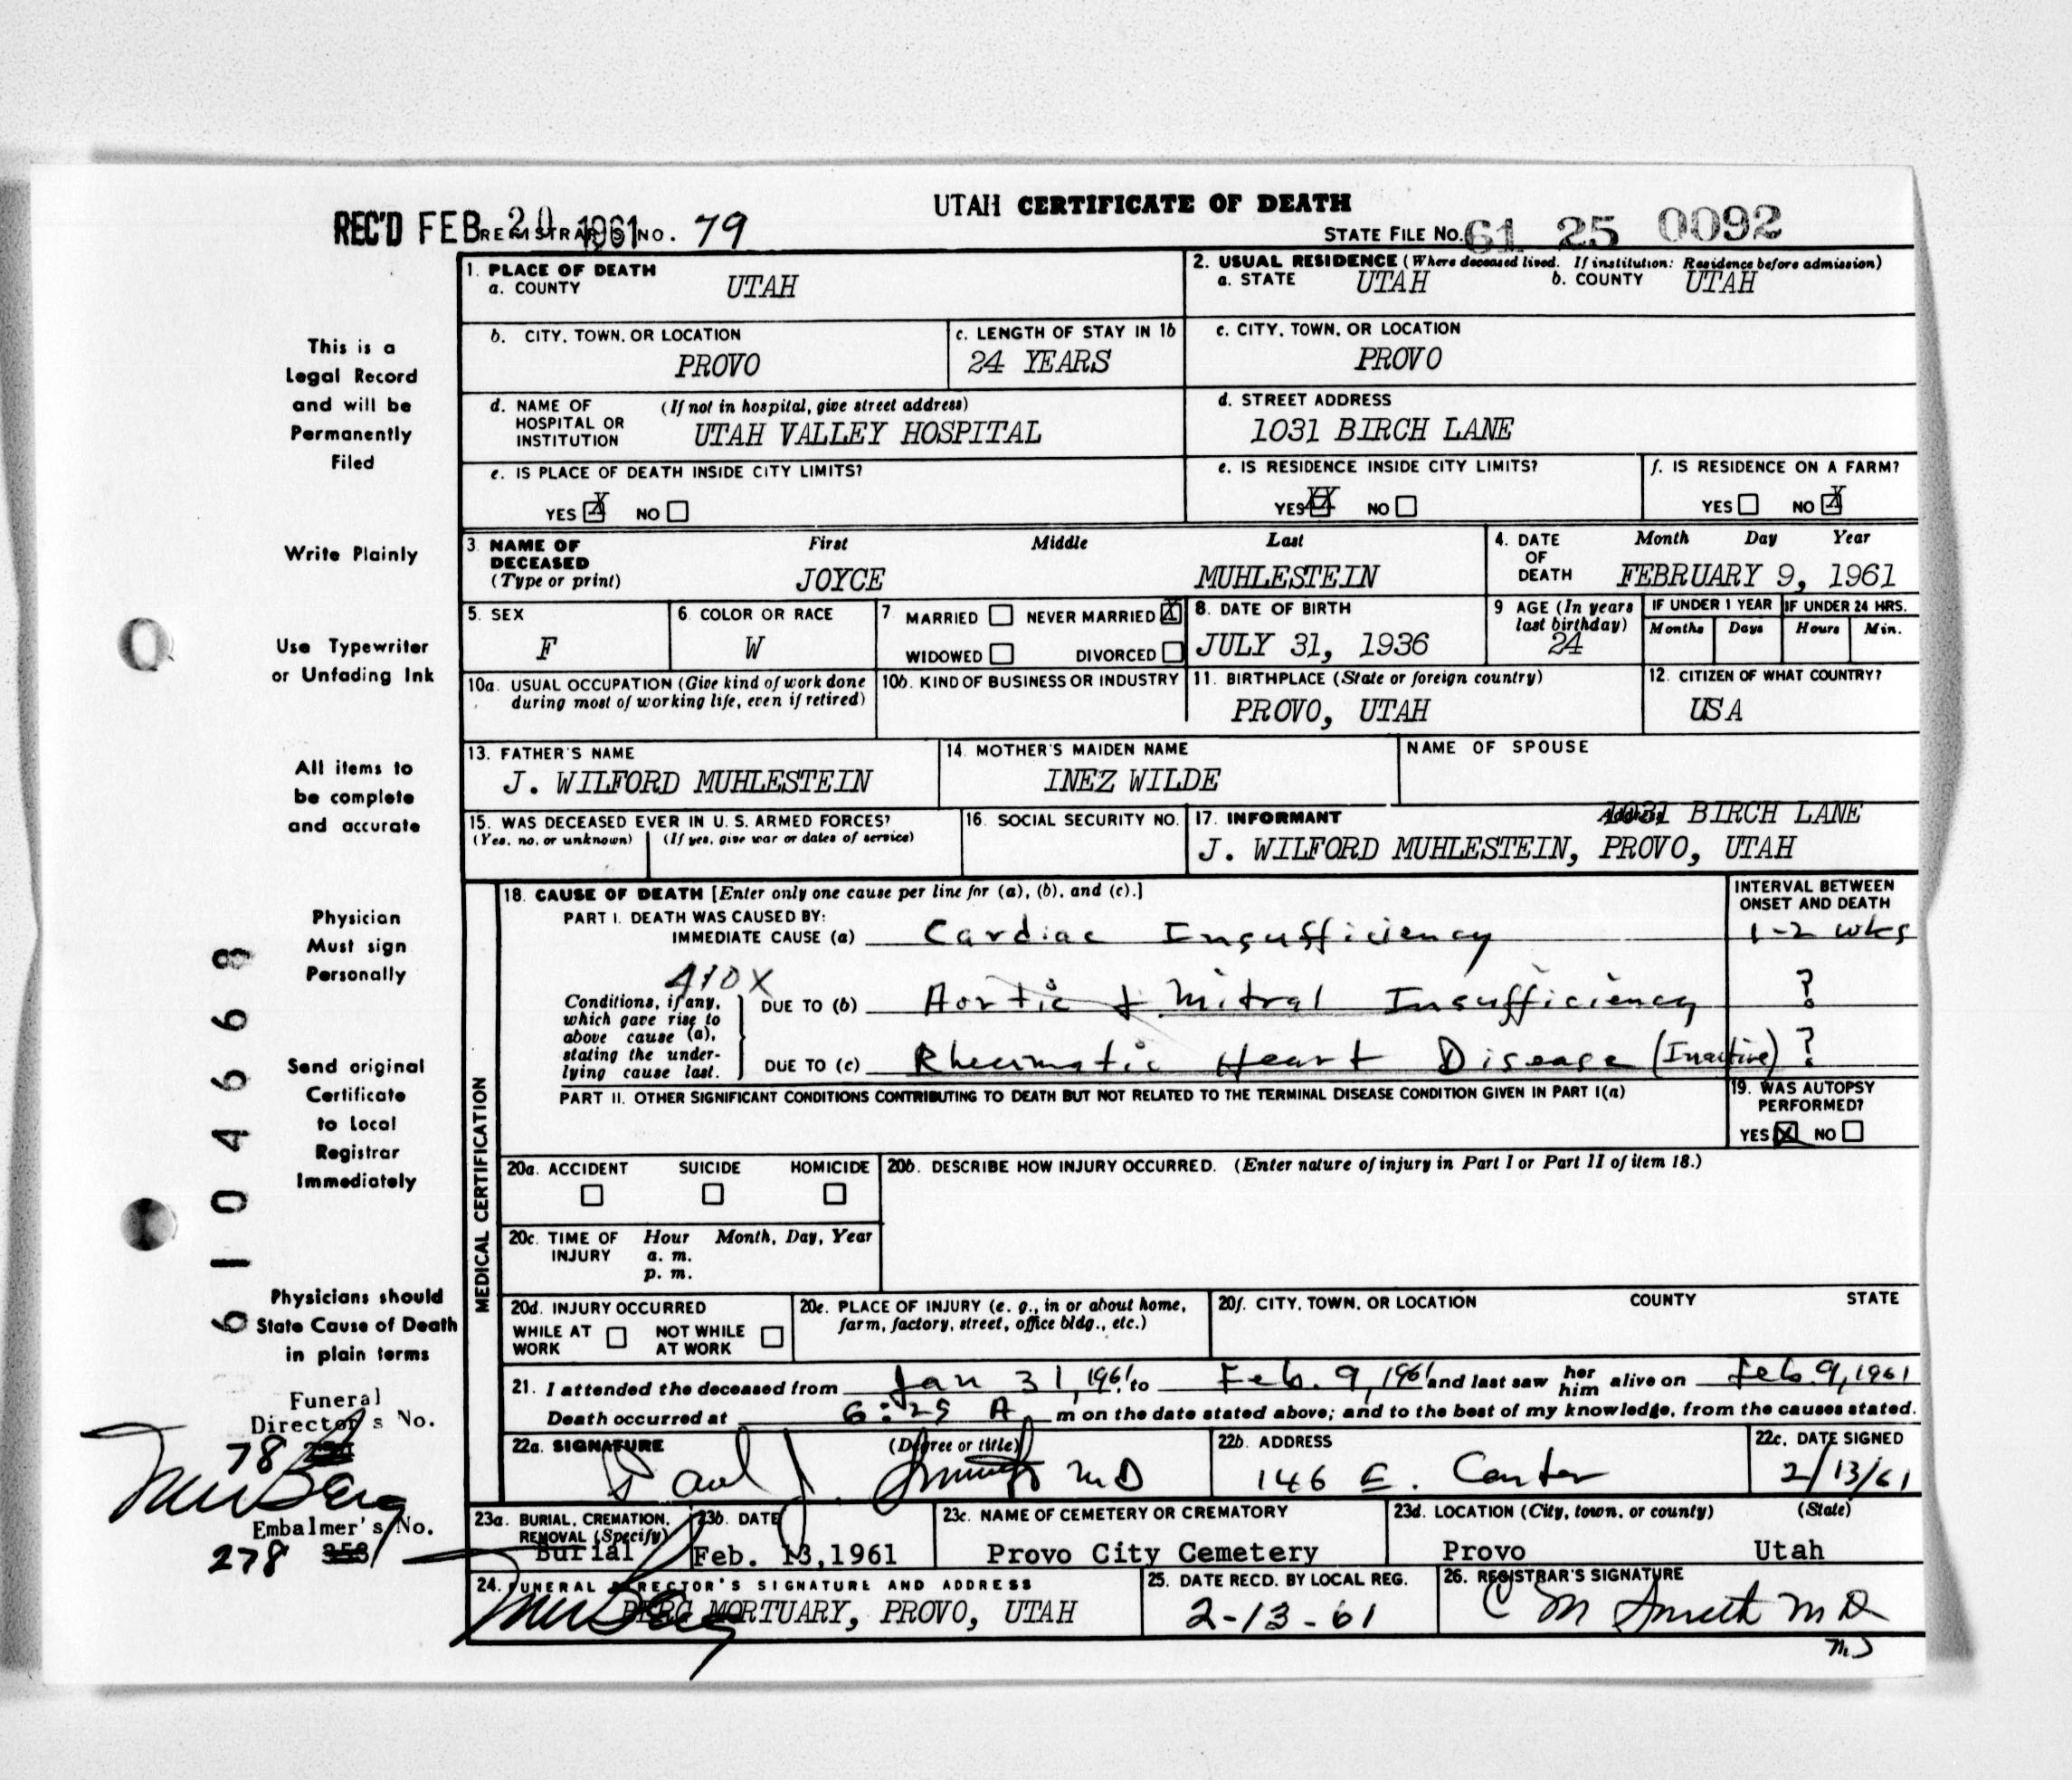 UTAH CERTIFICATE OF DEATH
REC'D FEB 20 1961 REGISTRAR'S NO. 79
STATE FILE NO. 61 25 0092
This is a
Legal Record
and will be
Permanently
Filed
Write Plainly
Use Typewriter
or Unfading Ink
All items to
be complete
and accurate
Physician
Must sign
Personally
Send original
Certificate
to Local
Registrar
Immediately
Physicians should
State Cause of Death
in plain terms
Funeral
Director's No.
78
Embalmer's No.
278
6104668
1. PLACE OF DEATH
a. COUNTY UTAH
2. USUAL RESIDENCE (Where deceased lived. If institution: Residence before admission)
a. STATE UTAH b. COUNTY UTAH
b. CITY, TOWN, OR LOCATION
PROVO
c. LENGTH OF STAY IN 1b
24 YEARS
c. CITY, TOWN, OR LOCATION
PROVO
d. NAME OF HOSPITAL OR INSTITUTION (If not in hospital, give street address)
UTAH VALLEY HOSPITAL
d. STREET ADDRESS
1031 BIRCH LANE
e. IS PLACE OF DEATH INSIDE CITY LIMITS?
YES X NO
e. IS RESIDENCE INSIDE CITY LIMITS?
YES X NO
f. IS RESIDENCE ON A FARM?
YES NO X
3. NAME OF DECEASED (Type or print)
First Middle Last
JOYCE MUHLESTEIN
4. DATE OF DEATH Month Day Year
FEBRUARY 9, 1961
5. SEX
F
6. COLOR OR RACE
W
7 MARRIED NEVER MARRIED X
WIDOWED DIVORCED
8. DATE OF BIRTH
JULY 31, 1936
9 AGE (In years last birthday)
24
IF UNDER 1 YEAR IF UNDER 24 HRS.
Months Days Hours Min.
10a. USUAL OCCUPATION (Give kind of work done during most of working life, even if retired)
10b. KIND OF BUSINESS OR INDUSTRY
11. BIRTHPLACE (State or foreign country)
PROVO, UTAH
12. CITIZEN OF WHAT COUNTRY?
USA
13. FATHER'S NAME
J. WILFORD MUHLESTEIN
14. MOTHER'S MAIDEN NAME
INEZ WILDE
NAME OF SPOUSE
15. WAS DECEASED EVER IN U. S. ARMED FORCES?
(Yes, no, or unknown) (If yes, give war or dates of service)
16. SOCIAL SECURITY NO.
17. INFORMANT Address 1031 BIRCH LANE
J. WILFORD MUHLESTEIN, PROVO, UTAH
MEDICAL CERTIFICATION
18. CAUSE OF DEATH [Enter only one cause per line for (a), (b), and (c).]
INTERVAL BETWEEN ONSET AND DEATH
PART I. DEATH WAS CAUSED BY:
IMMEDIATE CAUSE (a) Cardiac Insufficiency 1-2 wks
410X
Conditions, if any, which gave rise to above cause (a), stating the underlying cause last.
DUE TO (b) Aortic & Mitral Insufficiency ?
DUE TO (c) Rheumatic Heart Disease (Inactive) ?
PART II. OTHER SIGNIFICANT CONDITIONS CONTRIBUTING TO DEATH BUT NOT RELATED TO THE TERMINAL DISEASE CONDITION GIVEN IN PART I(a)
19. WAS AUTOPSY PERFORMED?
YES X NO
20a. ACCIDENT SUICIDE HOMICIDE
20b. DESCRIBE HOW INJURY OCCURRED. (Enter nature of injury in Part I or Part II of item 18.)
20c. TIME OF INJURY Hour Month, Day, Year
a. m.
p. m.
20d. INJURY OCCURRED
WHILE AT WORK NOT WHILE AT WORK
20e. PLACE OF INJURY (e. g., in or about home, farm, factory, street, office bldg., etc.)
20f. CITY, TOWN, OR LOCATION COUNTY STATE
21. I attended the deceased from Jan 31, 1961 to Feb. 9, 1961 and last saw her him alive on Feb 9, 1961
Death occurred at 6:25 A m on the date stated above; and to the best of my knowledge, from the causes stated.
22a. SIGNATURE (Degree or title)
Paul J. MD
22b. ADDRESS
146 E. Center
22c. DATE SIGNED
2/13/61
23a. BURIAL, CREMATION, REMOVAL (Specify)
Burial
23b. DATE
Feb. 13, 1961
23c. NAME OF CEMETERY OR CREMATORY
Provo City Cemetery
23d. LOCATION (City, town, or county) (State)
Provo Utah
24. FUNERAL DIRECTOR'S SIGNATURE AND ADDRESS
BERG MORTUARY, PROVO, UTAH
25. DATE RECD. BY LOCAL REG.
2-13-61
26. REGISTRAR'S SIGNATURE
C M Smith MD